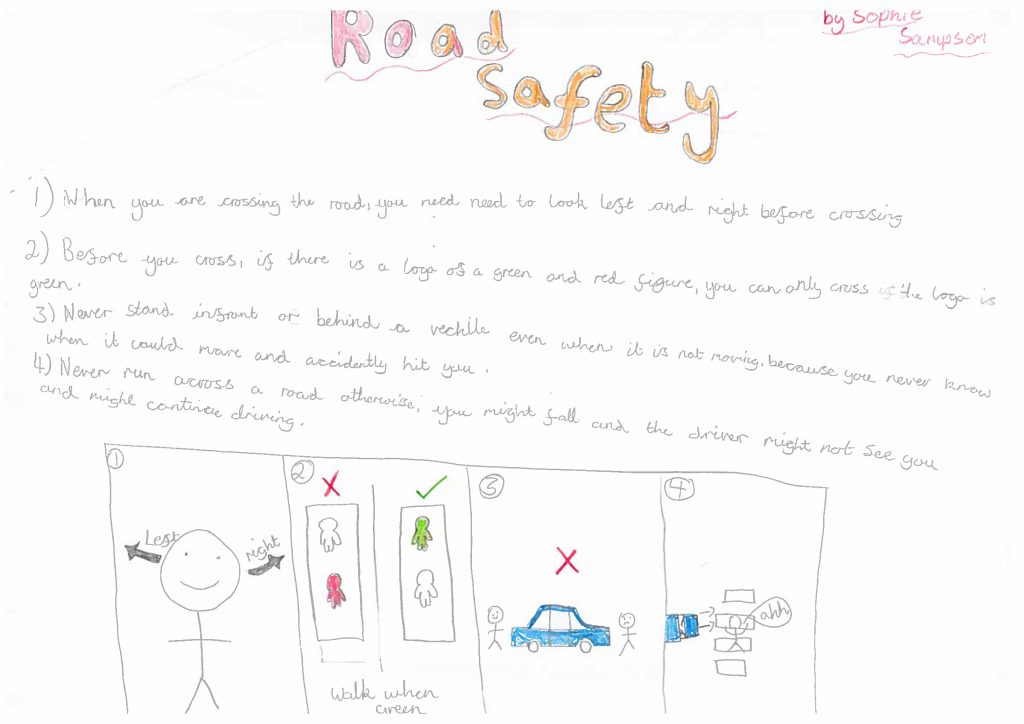 Road
Safety
by Sophie
Sampson
1) When you are crossing the road, you need need to look left and right before crossing
2) Before you cross, if there is a logo of a green and red figure, you can only cross if the logo is
green.
3) Never stand infront or behind a vechile even when it is not moving, because you never know
when it could move and accidently hit you.
4) Never run across a road otherwise, you might fall and the driver might not see you
and might continue driving.
1
Left
right
2
Walk when
Green
3
4
ahh